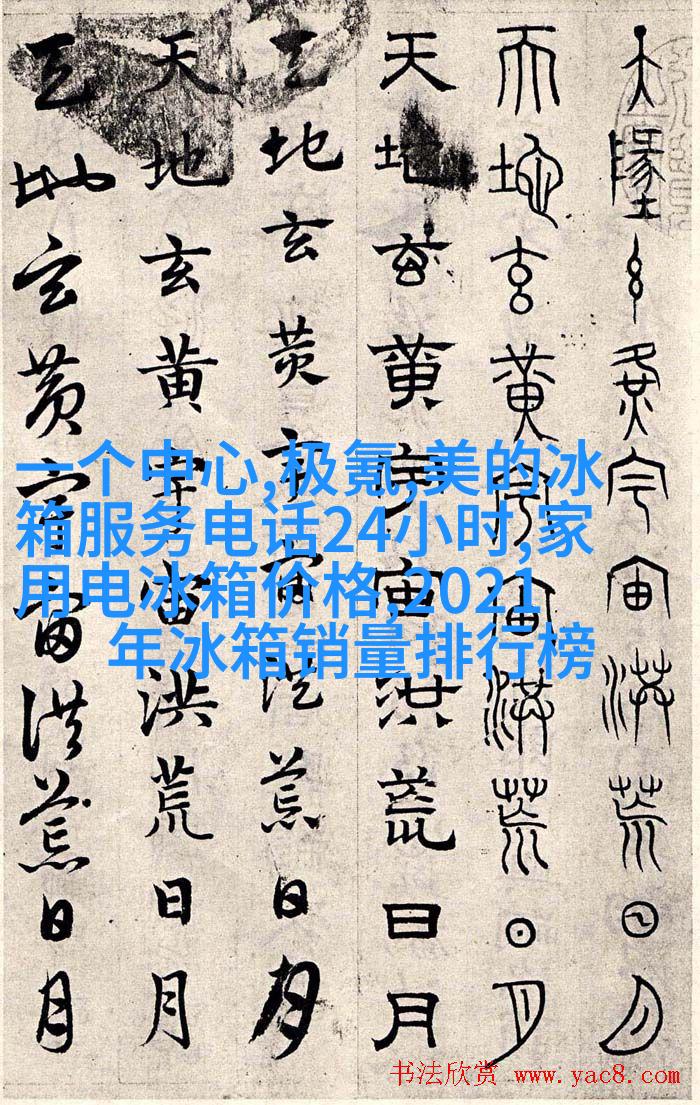 天墬玄黃宇宙洪荒日月
天地玄黃宇宙洪荒日月
天地玄黃宇宙洪荒日月
天地玄黃宇宙洪荒日月
天地玄黃宇宙洪荒日月
天地玄黃宇宙洪荒日月
一个中心,极氪,美的冰
箱服务电话24小时,家
用电冰箱价格,2021
年冰箱销量排行榜
书法欣赏 www.yac8.com